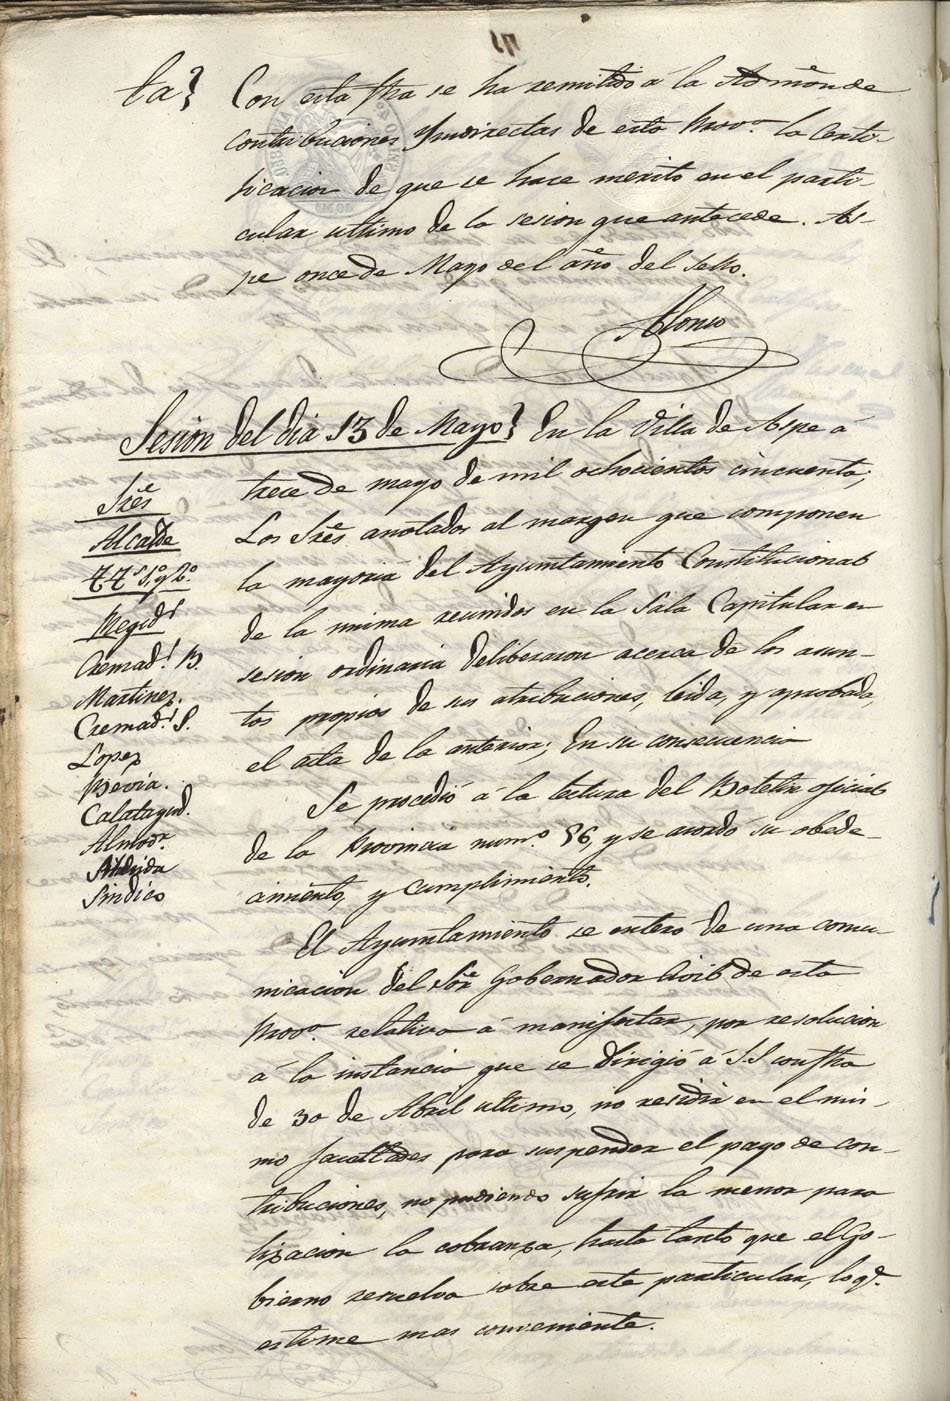 ta?
Con esta fha se ha remitido á la Admõn de
contribuciones Yndirectas de esta Prov.ª la Certi-
ficacion de que se hace merito en el parti-
cular ultimo de la sesion que antecede. As-
pe once de Mayo del año del sello.
Alonso
Sesion del dia 13 de Mayo? En la Villa de Aspe á
trece de mayo de mil ochocientos cincuenta;
Los Sres anotados al margen que componen
la mayoria del Ayuntamiento Constitucional
de la misma reunidos en la Sala Capitular en
sesion ordinaria deliberaron acerca de los asun-
tos propios de sus atribuciones, leida, y aprobada,
el acta de la anterior; En su consecuencia
Sres
Alcalde
TT.s 1.º y 2.º
Regid.s
Cremad.s B.
Martinez.
Cremad.s S.
Lopez
Bevia.
Calatayud.
Almod.r
Alenda
Sindico
Se procedió á la lectura del Boletin oficial
de la Provincia num.º 56, y se acordó su obede-
cimiento, y cumplimiento.
El Ayuntamiento se enteró de una comu-
nicacion del Sor Gobernador Civil de esta
Prov.ª relativa á manifestar, por resolucion
á la instancia que se dirigió á S.S con fha
de 30 de Abril ultimo, no residir en el mis-
mo facultades para suspender el pago de con-
tribuciones, no pudiendo sufrir la menor para
lizacion la cobranza, hasta tanto que el Go-
bierno resuelva sobre este particular, lo q.e
estime mas conveniente.